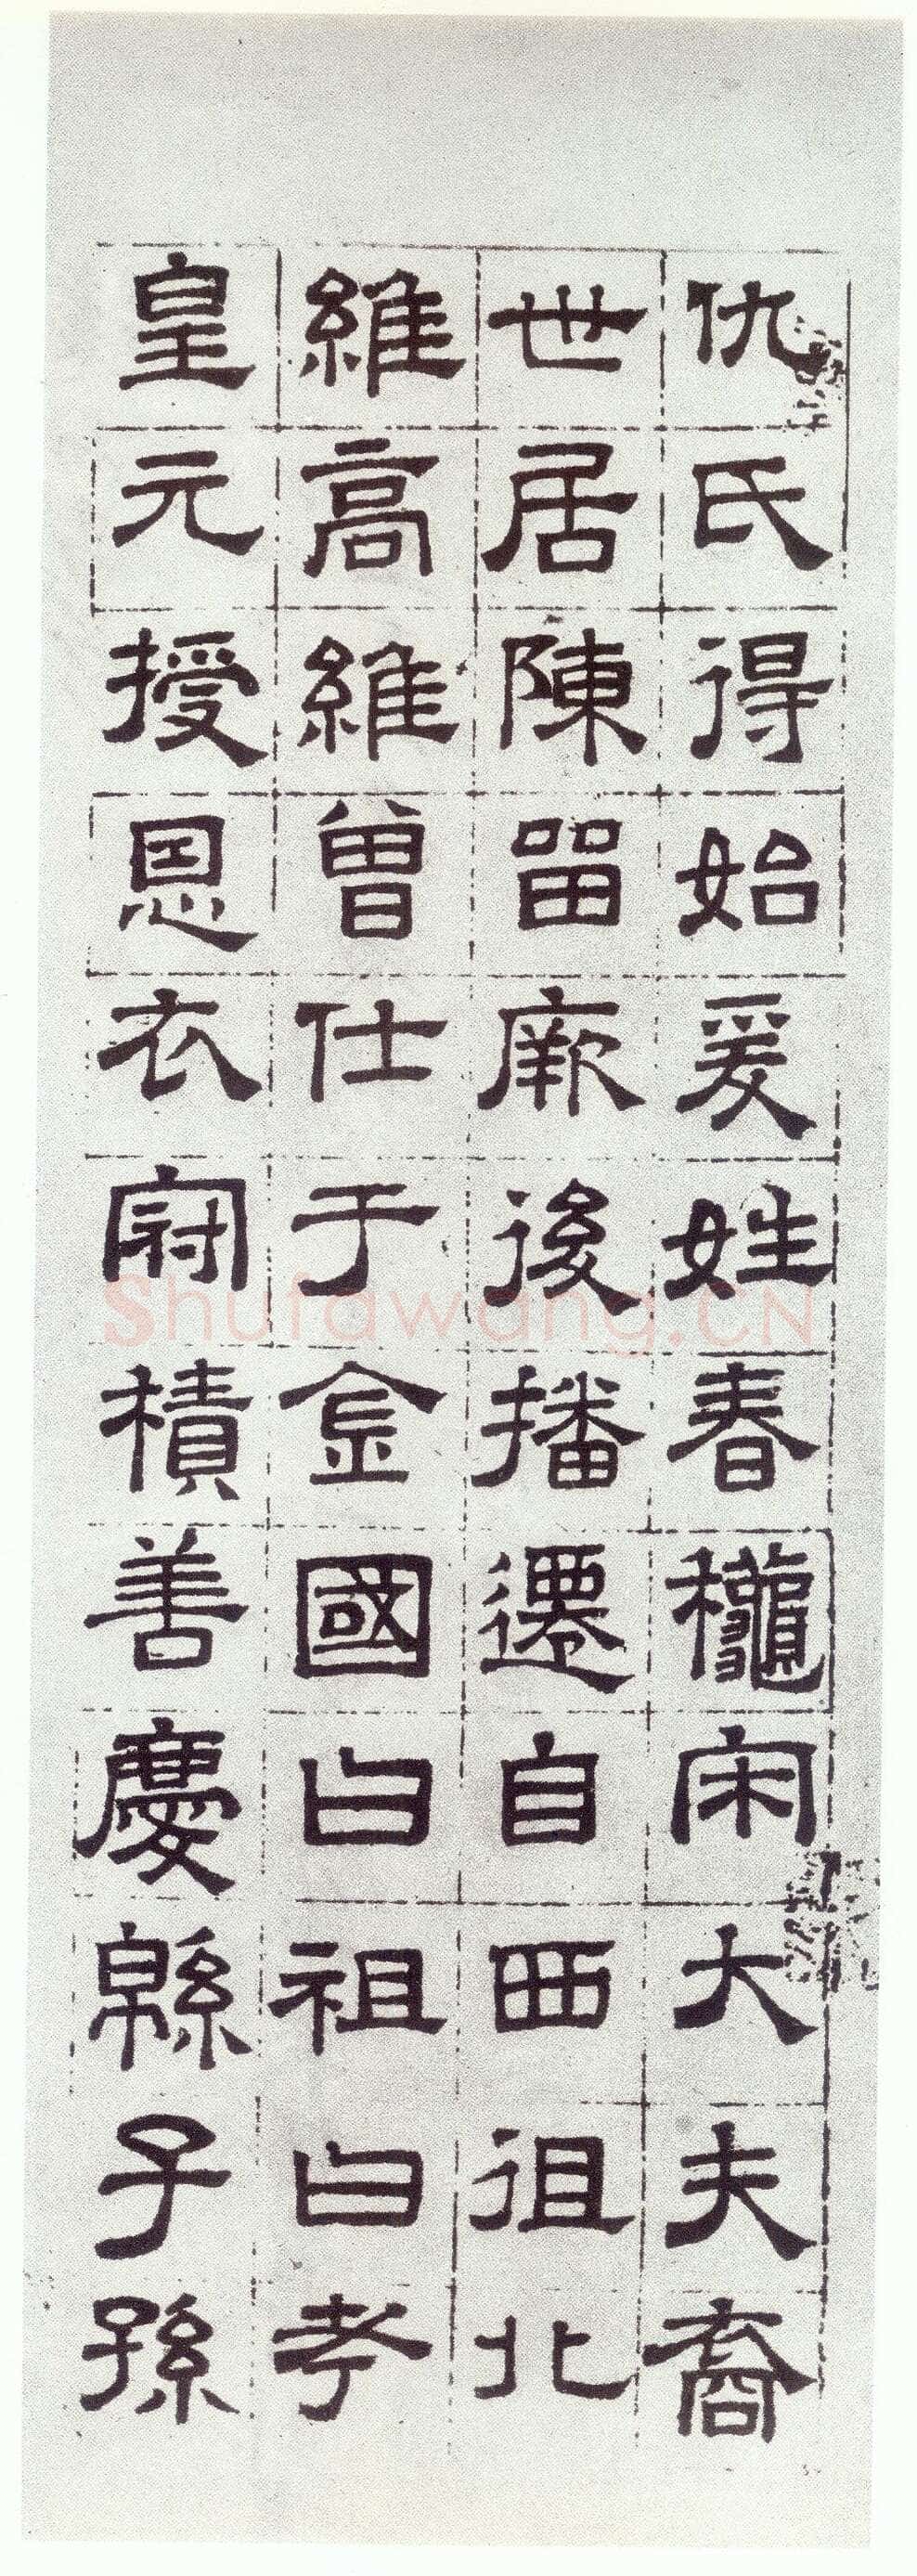 仇氏得始爰姓春龝宋大夫裔
世居陳留厥後播遷自西徂北
維高維曾仕于金國曰祖曰考
皇元授恩衣冠積善慶緜子孫
Shufawang.CN